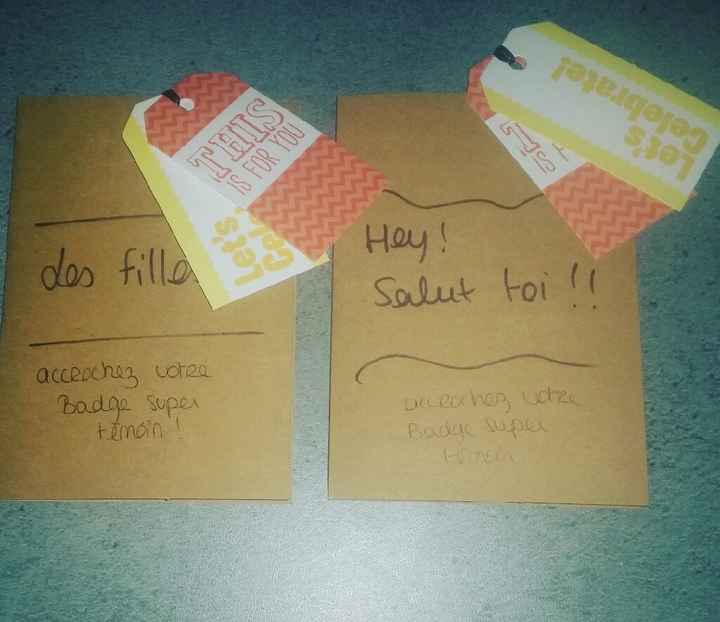 THIS
IS FOR YOU
Let's
des fille
accrochez votre
Badge super
témoin !
Let's
Celebrate!
Hey!
Salut toi !!
accrochez votre
Badge super
témoin